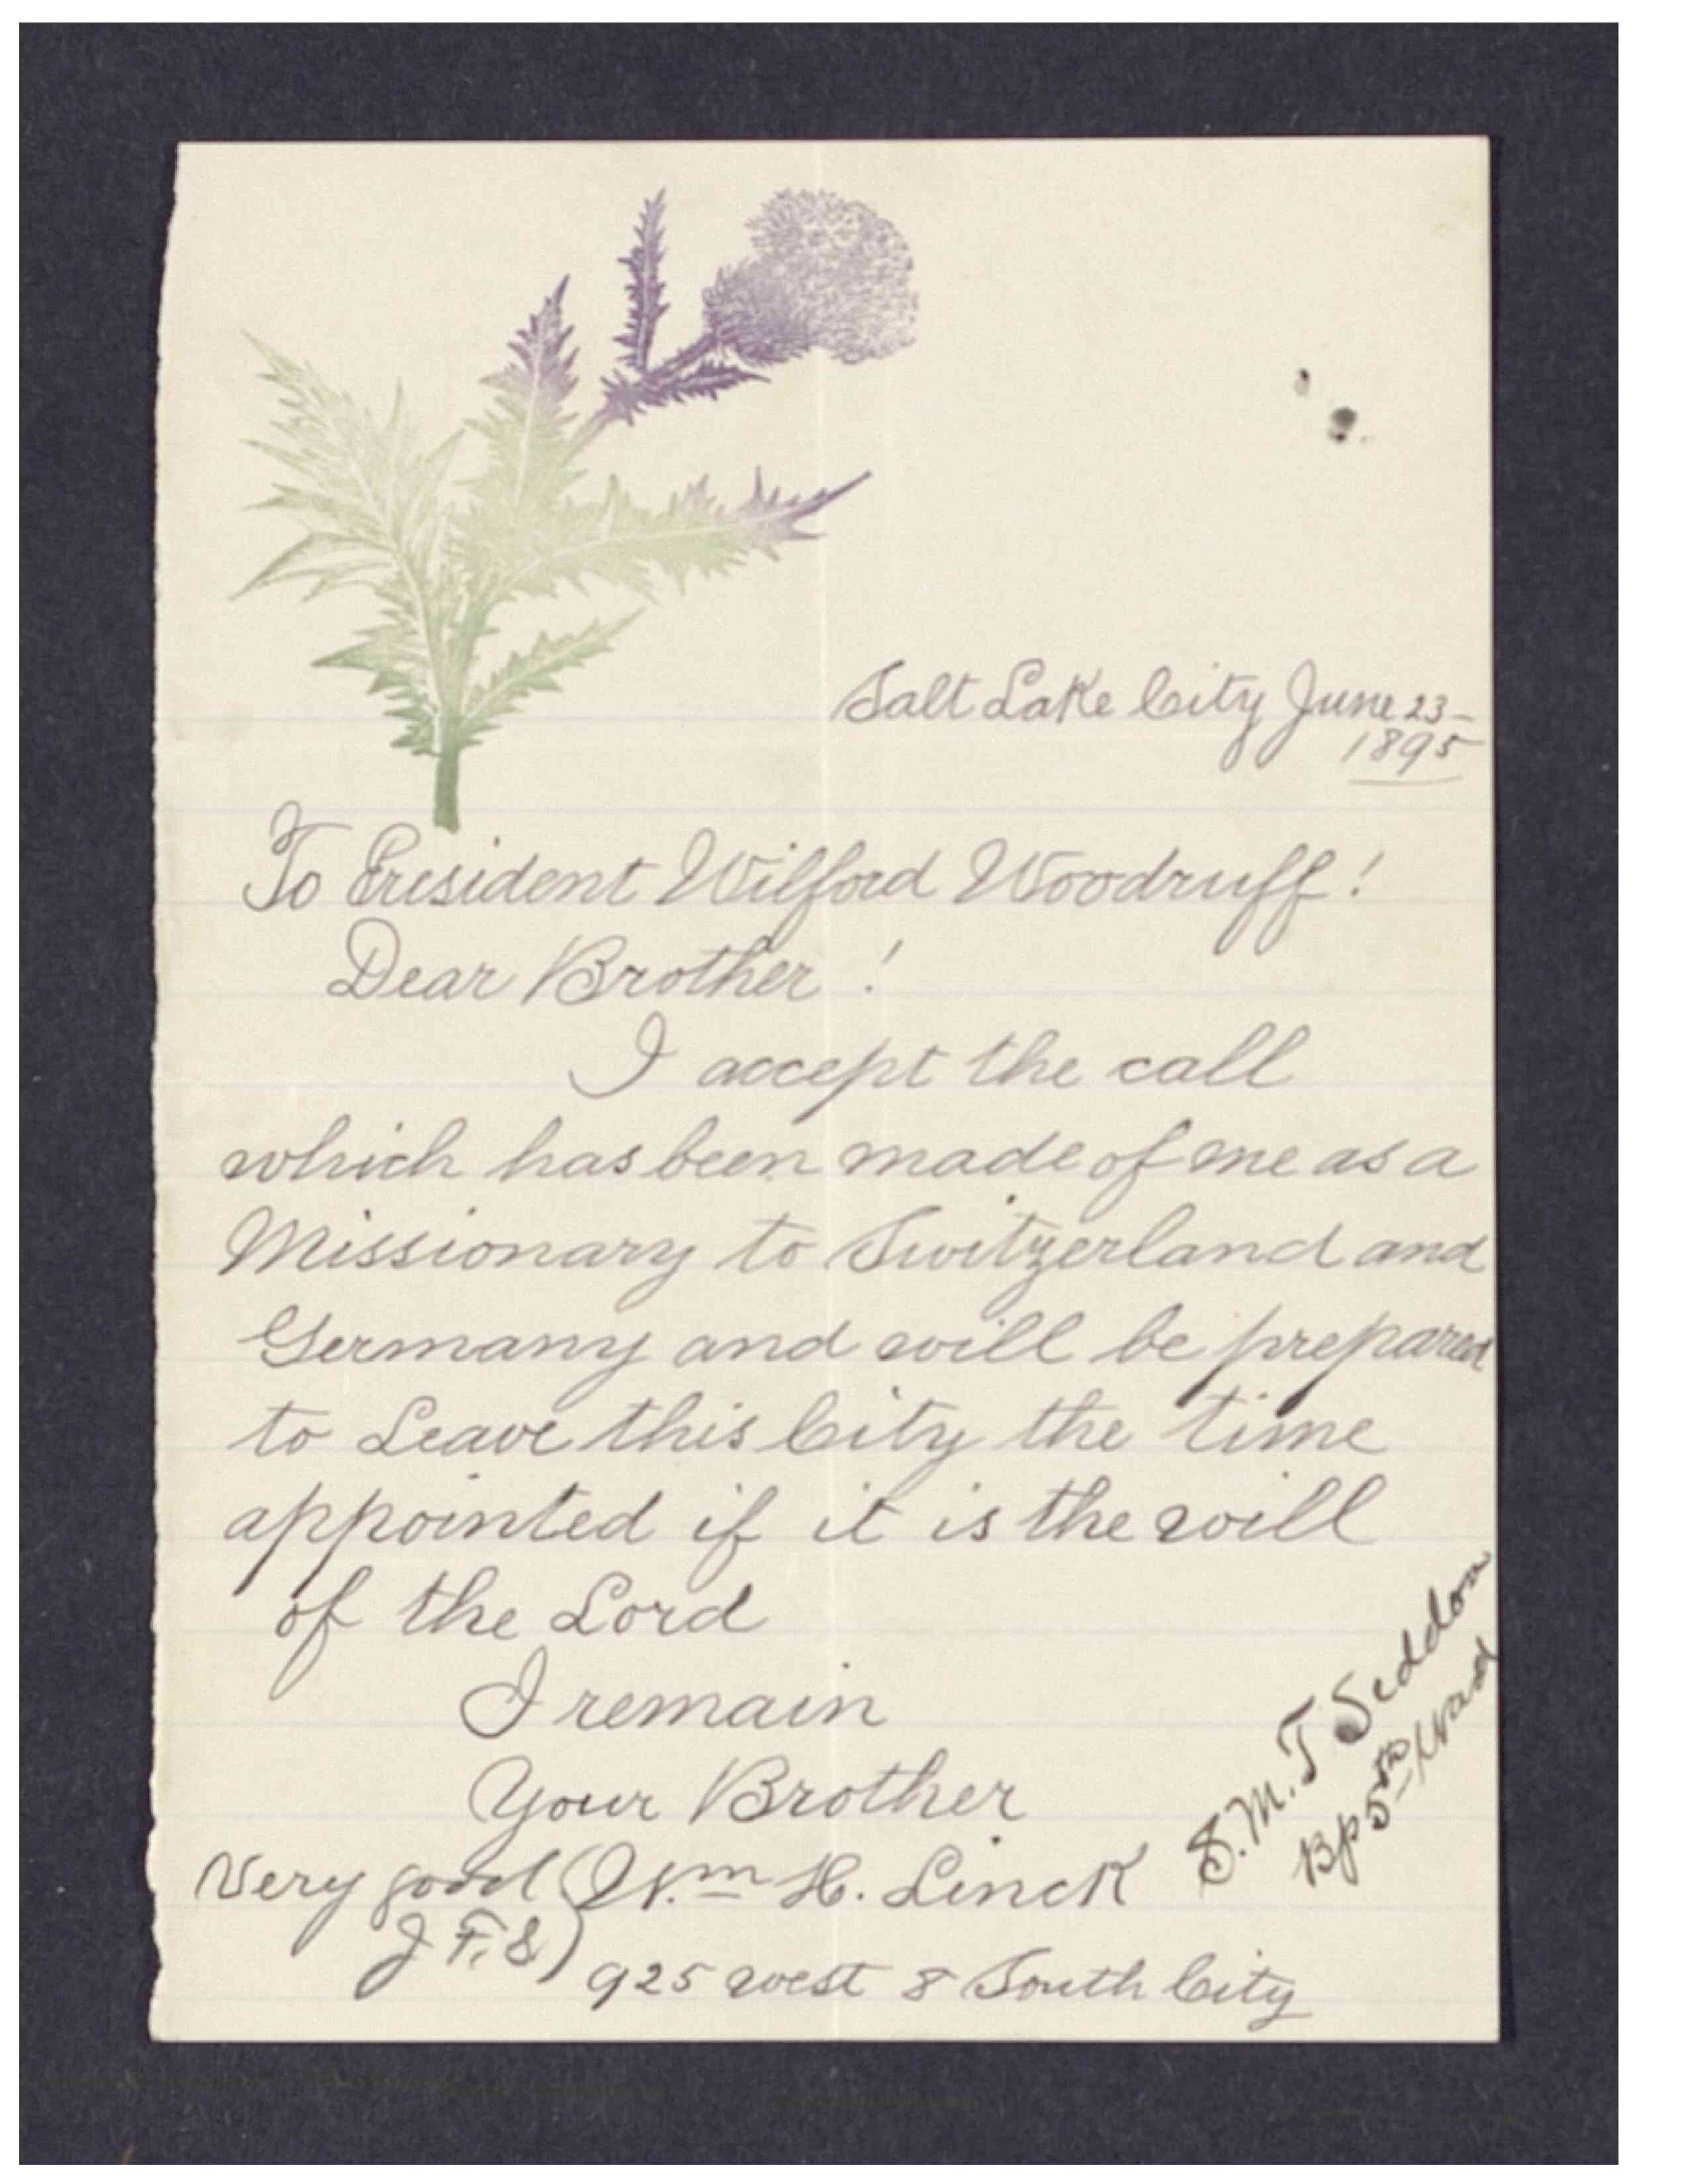 Salt Lake City June 23-
1895
To President Wilford Woodruff!
Dear Brother!
I accept the call
which has been made of me as a
Missionary to Switzerland and
Germany and will be prepared
to Leave this City the time
appointed if it is the will
of the Lord
I remain
Your Brother
Wm H. Linck
925 west 8 South City
Very good
J. F. S.
S. M. T Seddon
Bp 5th Ward